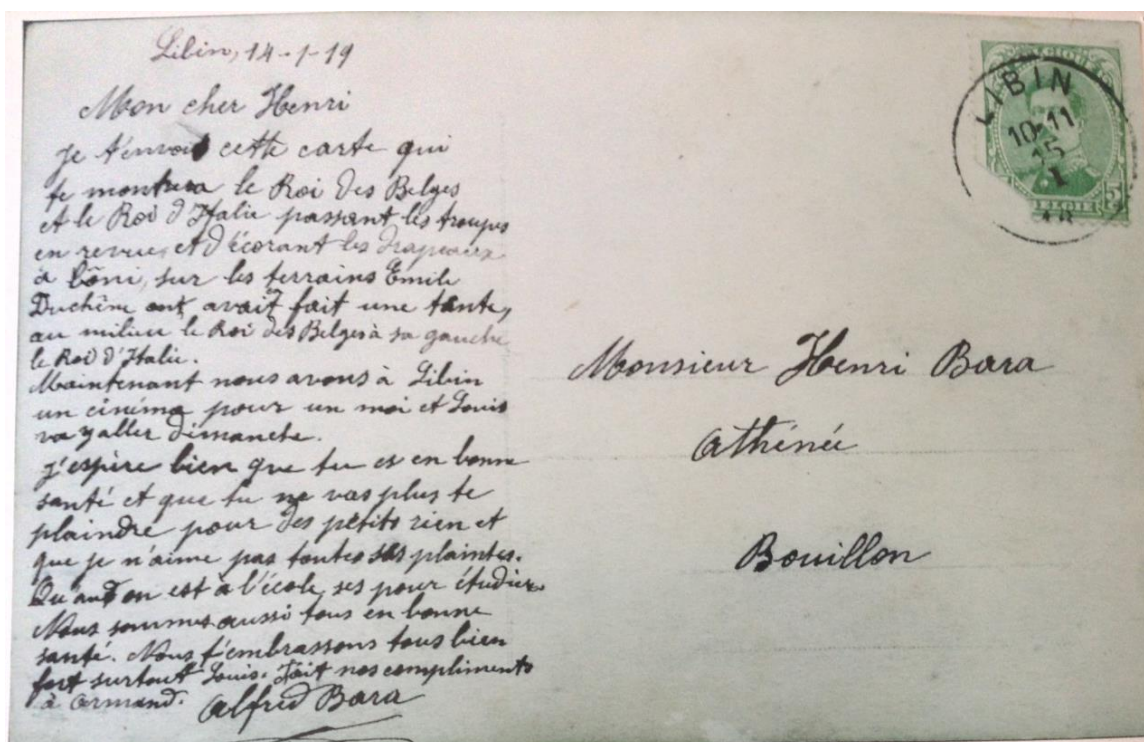 Libin, 14-1-19
Mon cher Henri
Je t'envois cette carte qui
te montrera le Roi des Belges
et le Roi d'Italie passant les troupes
en revue, et d'écorant les drapeaux
à Côni, sur les terrains Emile
Duchêne ont avait fait une tante,
au milieu le Roi des Belges à sa gauche
le Roi d'Italie.
Maintenant nous avons à Libin
un cinéma pour un moi et Louis
va y aller dimanche.
J'espère bien que tu es en bonne
santé et que tu ne vas plus te
plaindre pour des petits rien et
que je n'aime pas toutes ses plaintes.
Quand on est à l'école, ses pour étudier.
Nous sommes aussi tous en bonne
santé. Nous t'embrassons tous bien
fort surtout Louis. Fait nos compliments
à Armand. Alfred Bara
LIBIN
10-11
15
I
BELGIE 5
Monsieur Henri Bara
Athénée
Bouillon